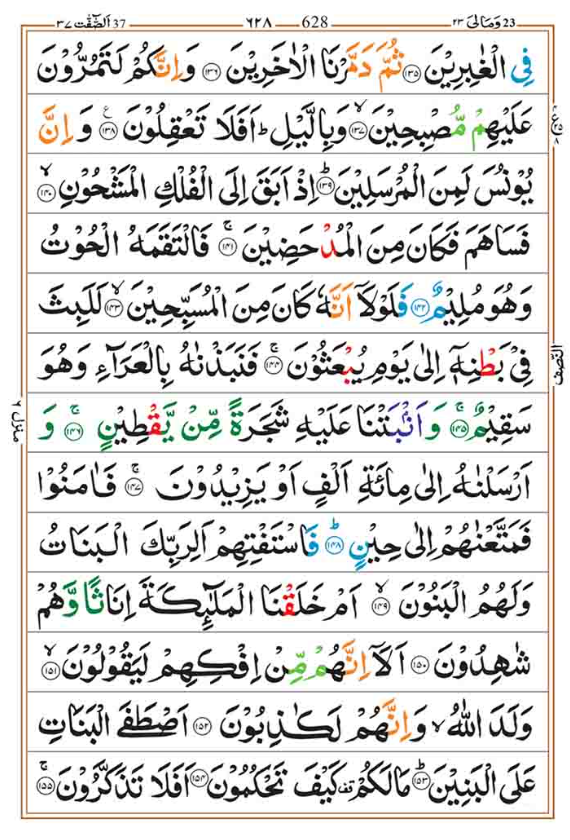 23 وَمَالِیَ ٢٣ 628 ٦٢٨ 37 اَلصّٰٓفّٰت ٣٧
فِی الْغٰبِرِیْنَ ﴿۱۳۵﴾ ثُمَّ دَمَّرْنَا الْاٰخَرِیْنَ ﴿۱۳۶﴾ وَاِنَّكُمْ لَتَمُرُّوْنَ
عَلَیْهِمْ مُّصْبِحِیْنَ ﴿۱۳۷﴾ وَبِالَّیْلِ ؕ اَفَلَا تَعْقِلُوْنَ ﴿۱۳۸﴾ وَ اِنَّ
یُوْنُسَ لَمِنَ الْمُرْسَلِیْنَ ﴿۱۳۹﴾ اِذْ اَبَقَ اِلَی الْفُلْكِ الْمَشْحُوْنِ ﴿۱۴۰﴾
فَسَاهَمَ فَكَانَ مِنَ الْمُدْحَضِیْنَ ﴿۱۴۱﴾ فَالْتَقَمَهُ الْحُوْتُ
وَهُوَ مُلِیْمٌ ﴿۱۴۲﴾ فَلَوْلَاۤ اَنَّهٗ كَانَ مِنَ الْمُسَبِّحِیْنَ ﴿۱۴۳﴾ لَلَبِثَ
فِیْ بَطْنِهٖۤ اِلٰی یَوْمِ یُبْعَثُوْنَ ﴿۱۴۴﴾ فَنَبَذْنٰهُ بِالْعَرَآءِ وَهُوَ
النصف
سَقِیْمٌ ﴿۱۴۵﴾ وَاَنْۢبَتْنَا عَلَیْهِ شَجَرَةً مِّنْ یَّقْطِیْنٍ ﴿۱۴۶﴾ وَ
منزل ٦
اَرْسَلْنٰهُ اِلٰی مِائَةِ اَلْفٍ اَوْ یَزِیْدُوْنَ ﴿۱۴۷﴾ فَاٰمَنُوْا
فَمَتَّعْنٰهُمْ اِلٰی حِیْنٍ ﴿۱۴۸﴾ فَاسْتَفْتِهِمْ اَلِرَبِّكَ الْبَنَاتُ
وَلَهُمُ الْبَنُوْنَ ﴿۱۴۹﴾ اَمْ خَلَقْنَا الْمَلٰٓئِكَةَ اِنَاثًا وَّهُمْ
شٰهِدُوْنَ ﴿۱۵۰﴾ اَلَاۤ اِنَّهُمْ مِّنْ اِفْكِهِمْ لَیَقُوْلُوْنَ ﴿۱۵۱﴾
وَلَدَ اللّٰهُ ۙ وَاِنَّهُمْ لَكٰذِبُوْنَ ﴿۱۵۲﴾ اَصْطَفَی الْبَنَاتِ
عَلَی الْبَنِیْنَ ﴿۱۵۳﴾ مَا لَكُمْ قف كَیْفَ تَحْكُمُوْنَ ﴿۱۵۴﴾ اَفَلَا تَذَكَّرُوْنَ ﴿۱۵۵﴾